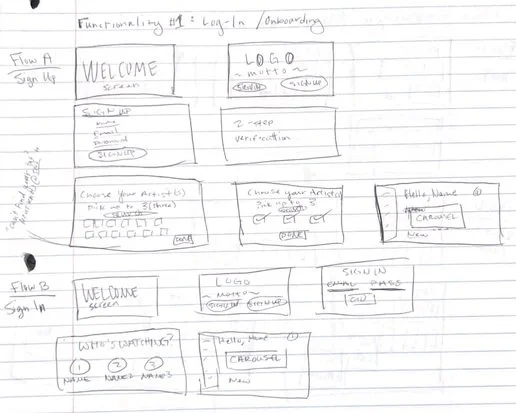 Functionality #1: Log-In / Onboarding
Flow A
Sign Up
WELCOME
screen
LOGO
~ motto ~
SIGN IN
SIGN UP
SIGN UP
name
Email
password
SIGN UP
2-step
verification
Choose Your Artist(s)
Pick up to 3 (three)
DONE
Choose your Artist(s)
Pick up to 3
DONE
Hello, Name
CAROUSEL
New
"Can't find your
Flow B
Sign In
WELCOME
screen
LOGO
~ motto ~
SIGN IN
SIGN UP
SIGN IN
EMAIL PASS
WHO'S WATCHING?
1 2 3
NAME NAME2 NAME3
Hello, Name
CAROUSEL
New